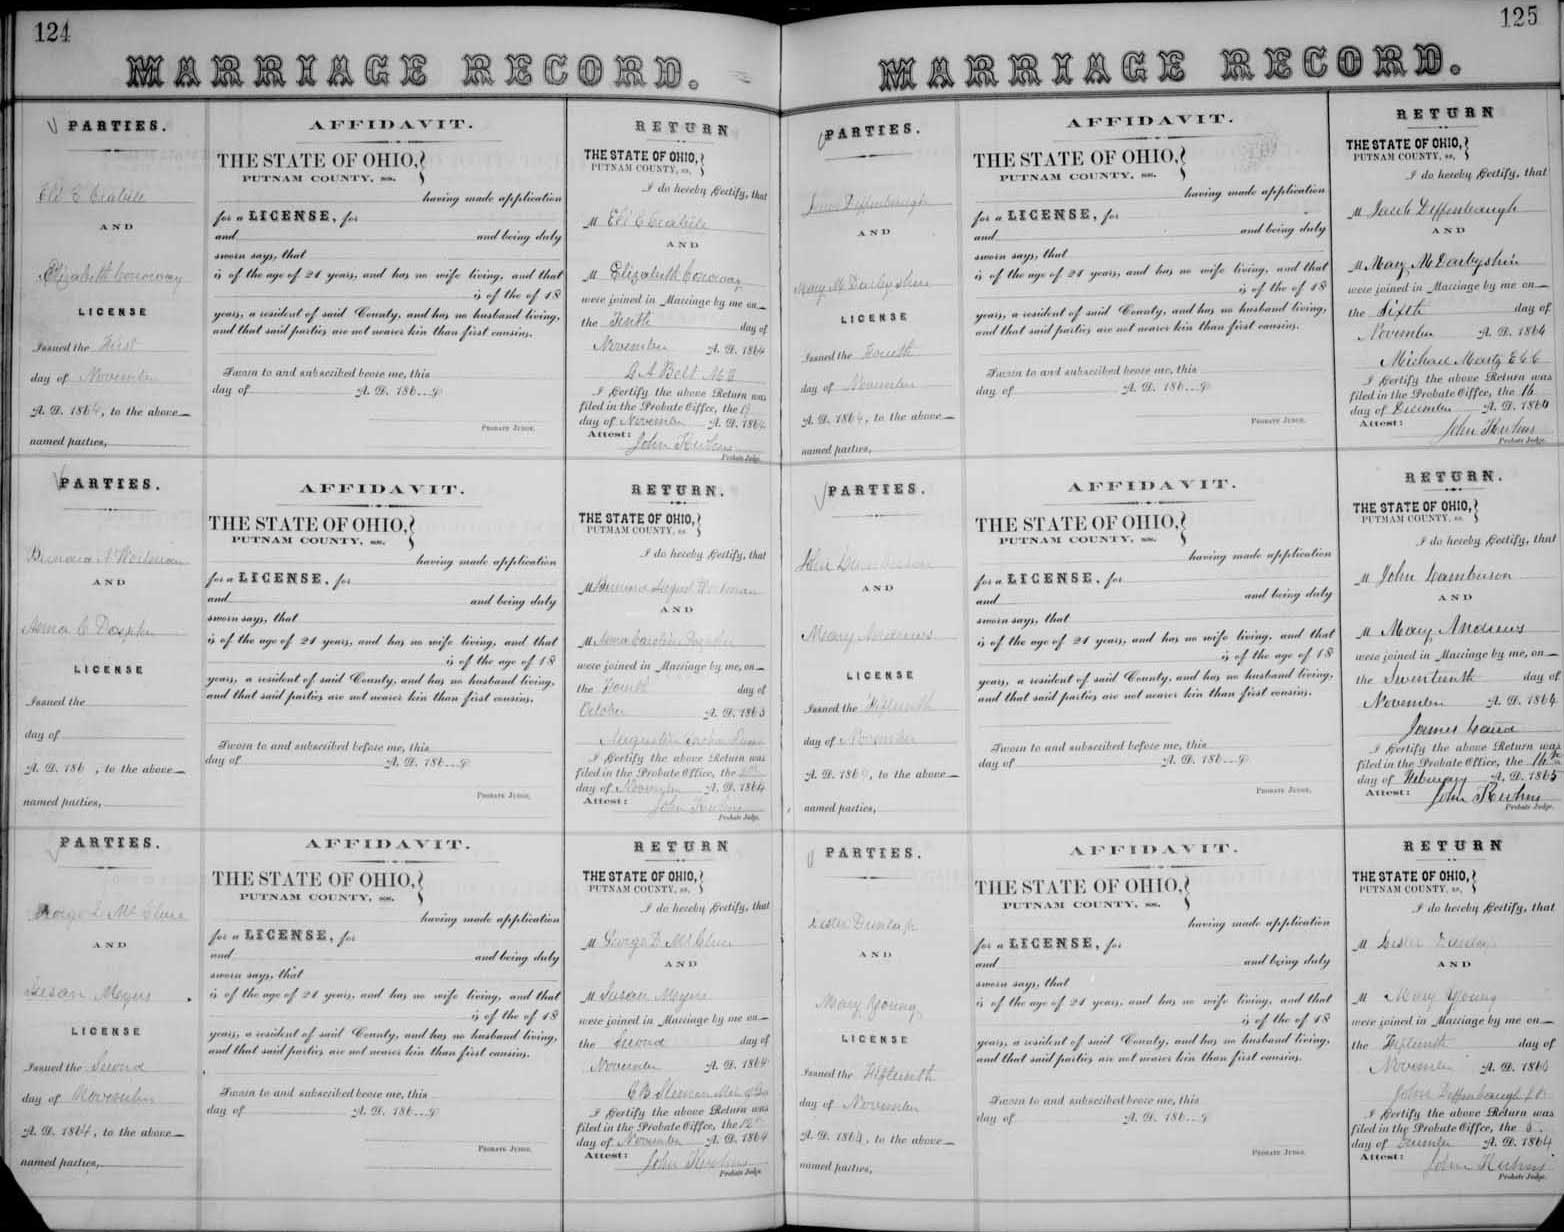 124
MARRIAGE RECORD.
PARTIES.
Eli C
AND
Elizabeth
LICENSE
Issued the First
day of November
A. D. 1864, to the above
named parties,
AFFIDAVIT.
THE STATE OF OHIO,
PUTNAM COUNTY, ss.
having made application
for a LICENSE, for
and and being duly
sworn says, that
is of the age of 21 years, and has no wife living, and that
is of the of 18
years, a resident of said County, and has no husband living,
and that said parties are not nearer kin than first cousins.
Sworn to and subscribed beore me, this
day of A. D. 186
PROBATE JUDGE.
RETURN
THE STATE OF OHIO,
PUTNAM COUNTY, ss.
I do hereby Certify, that
M Eli C
AND
M Elizabeth
were joined in Marriage by me on
the Tenth day of
November A. D. 1864
Belt
I Certify the above Return was
filed in the Probate Office, the 19
day of November A. D. 1864
Attest:
John
Probate Judge.
PARTIES.
AND
LICENSE
Issued the
day of
A. D. 186 , to the above
named parties,
AFFIDAVIT.
THE STATE OF OHIO,
PUTNAM COUNTY, ss.
having made application
for a LICENSE, for
and and being duly
sworn says, that
is of the age of 21 years, and has no wife living, and that
is of the age of 18
years, a resident of said County, and has no husband living,
and that said parties are not nearer kin than first cousins.
Sworn to and subscribed before me, this
day of A. D. 186
PROBATE JUDGE.
RETURN.
THE STATE OF OHIO,
PUTMAM COUNTY, ss.
I do hereby Certify, that
M
AND
M
were joined in Marriage by me, on
the Fourth day of
October A. D. 1863
I Certify the above Return was
filed in the Probate Office, the
day of November A. D. 1864
Attest:
John
Probate Judge.
PARTIES.
George D McClure
AND
Susan Meyers
LICENSE
Issued the Second
day of November
A. D. 1864, to the above
named parties,
AFFIDAVIT.
THE STATE OF OHIO,
PUTNAM COUNTY, ss.
having made application
for a LICENSE, for
and and being duly
sworn says, that
is of the age of 21 years, and has no wife living, and that
is of the of 18
years, a resident of said County, and has no husband living,
and that said parties are not nearer kin than first cousins.
Sworn to and subscribed beore me, this
day of A. D. 186
PROBATE JUDGE.
RETURN
THE STATE OF OHIO,
PUTNAM COUNTY, ss.
I do hereby Certify, that
M George D McClure
AND
M Susan Meyers
were joined in Marriage by me on
the Second day of
November A. D. 1864
I Certify the above Return was
filed in the Probate Office, the
day of November A. D. 1864
Attest:
John
Probate Judge.
125
MARRIAGE RECORD.
PARTIES.
Deffenbaugh
AND
Mary M Darbyshire
LICENSE
Issued the Fourth
day of November
A. D. 1864, to the above
named parties,
AFFIDAVIT.
THE STATE OF OHIO,
PUTNAM COUNTY, ss.
having made application
for a LICENSE, for
and and being duly
sworn says, that
is of the age of 21 years, and has no wife living, and that
is of the of 18
years, a resident of said County, and has no husband living,
and that said parties are not nearer kin than first cousins.
Sworn to and subscribed beore me, this
day of A. D. 186
PROBATE JUDGE.
RETURN
THE STATE OF OHIO,
PUTNAM COUNTY, ss.
I do hereby Certify, that
M Jacob Deffenbaugh
AND
M Mary M Darbyshire
were joined in Marriage by me on
the Sixth day of
November A. D. 1864
Michael Martz
I Certify the above Return was
filed in the Probate Office, the 16
day of December A. D. 1864
Attest:
John
Probate Judge.
PARTIES.
John
AND
Mary Andrews
LICENSE
Issued the Fifteenth
day of November
A. D. 1864, to the above
named parties,
AFFIDAVIT.
THE STATE OF OHIO,
PUTNAM COUNTY, ss.
having made application
for a LICENSE, for
and and being duly
sworn says, that
is of the age of 21 years, and has no wife living, and that
is of the age of 18
years, a resident of said County, and has no husband living,
and that said parties are not nearer kin than first cousins.
Sworn to and subscribed before me, this
day of A. D. 186
PROBATE JUDGE.
RETURN.
THE STATE OF OHIO,
PUTMAM COUNTY, ss.
I do hereby Certify, that
M John
AND
M Mary Andrews
were joined in Marriage by me, on
the day of
November A. D. 1864
James
I Certify the above Return was
filed in the Probate Office, the 14
day of February A. D. 1865
Attest:
John
Probate Judge.
PARTIES.
Lester Dunlap
AND
Mary Young
LICENSE
Issued the Fifteenth
day of November
A. D. 1864, to the above
named parties,
AFFIDAVIT.
THE STATE OF OHIO,
PUTNAM COUNTY, ss.
having made application
for a LICENSE, for
and and being duly
sworn says, that
is of the age of 21 years, and has no wife living, and that
is of the of 18
years, a resident of said County, and has no husband living,
and that said parties are not nearer kin than first cousins.
Sworn to and subscribed beore me, this
day of A. D. 186
PROBATE JUDGE.
RETURN
THE STATE OF OHIO,
PUTNAM COUNTY, ss.
I do hereby Certify, that
M Lester Dunlap
AND
M Mary Young
were joined in Marriage by me on
the Fifteenth day of
November A. D. 186
John Deffenbaugh J P
I Certify the above Return was
filed in the Probate Office, the
day of December A. D. 1864
Attest:
John
Probate Judge.